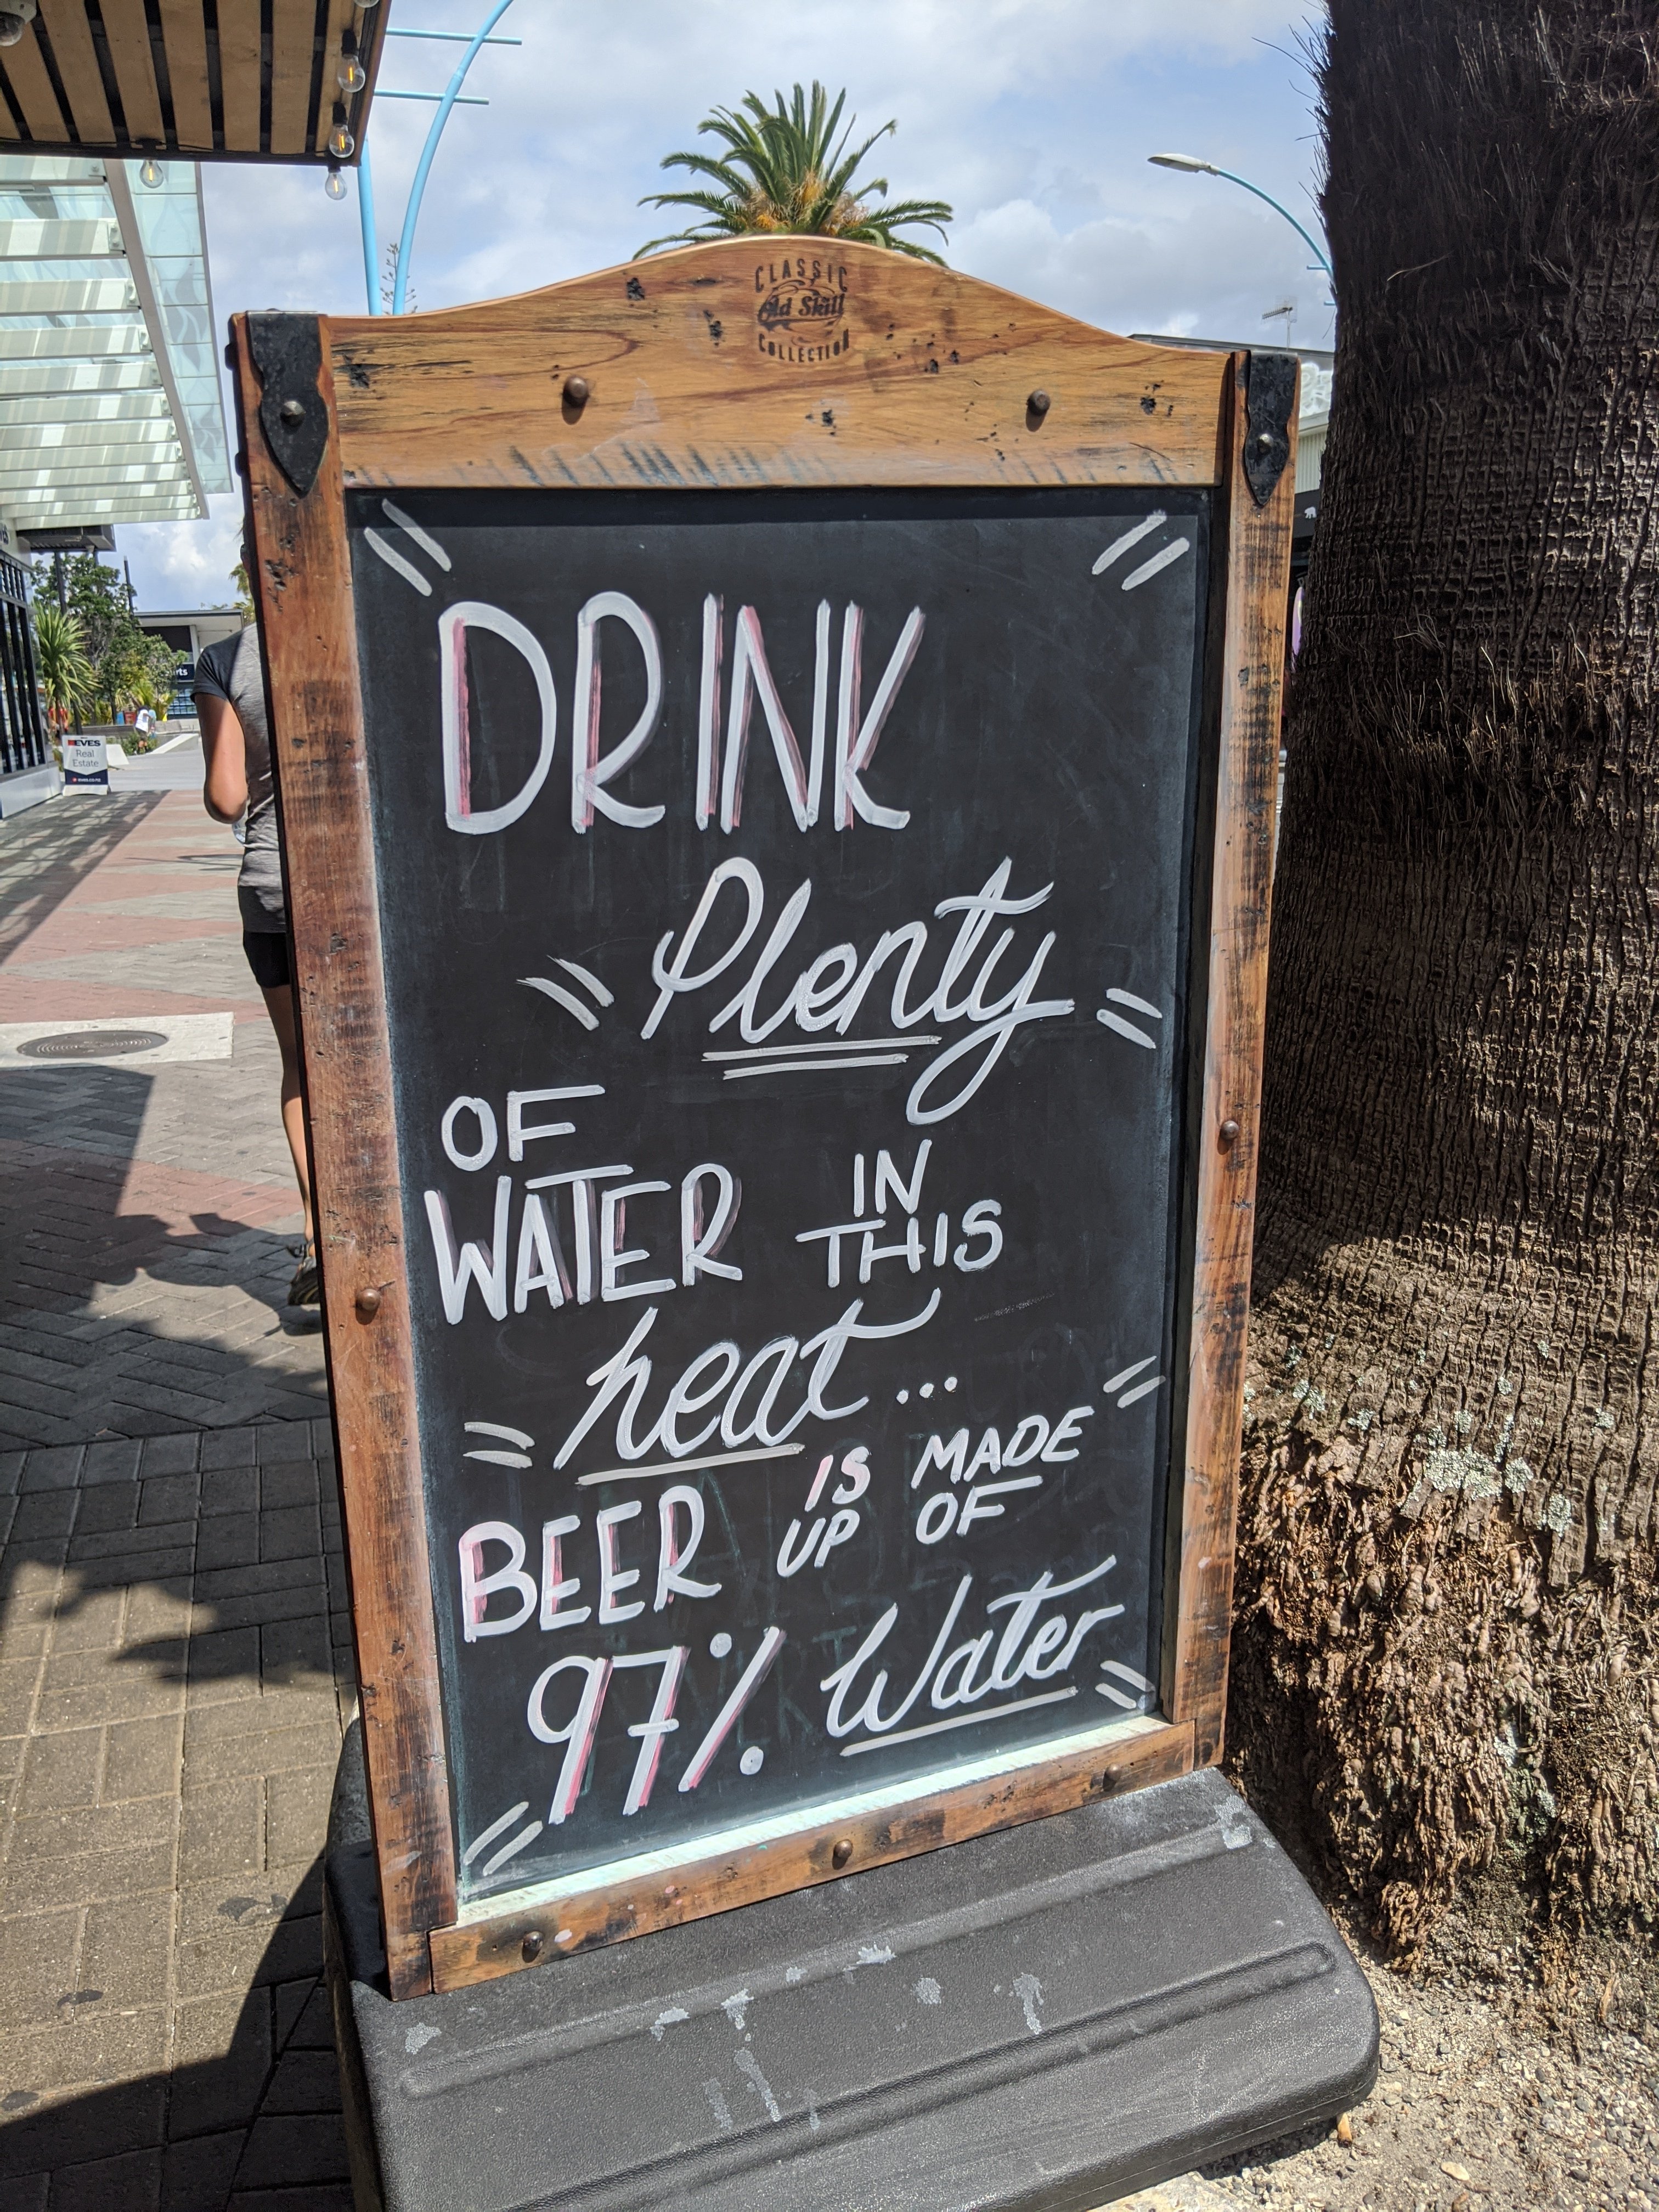 CLASSIC
Old Skill
COLLECTION
DRINK
Plenty
OF
WATER IN
THIS
heat...
BEER IS MADE
UP OF
97% Water
REVES
Real
Estate